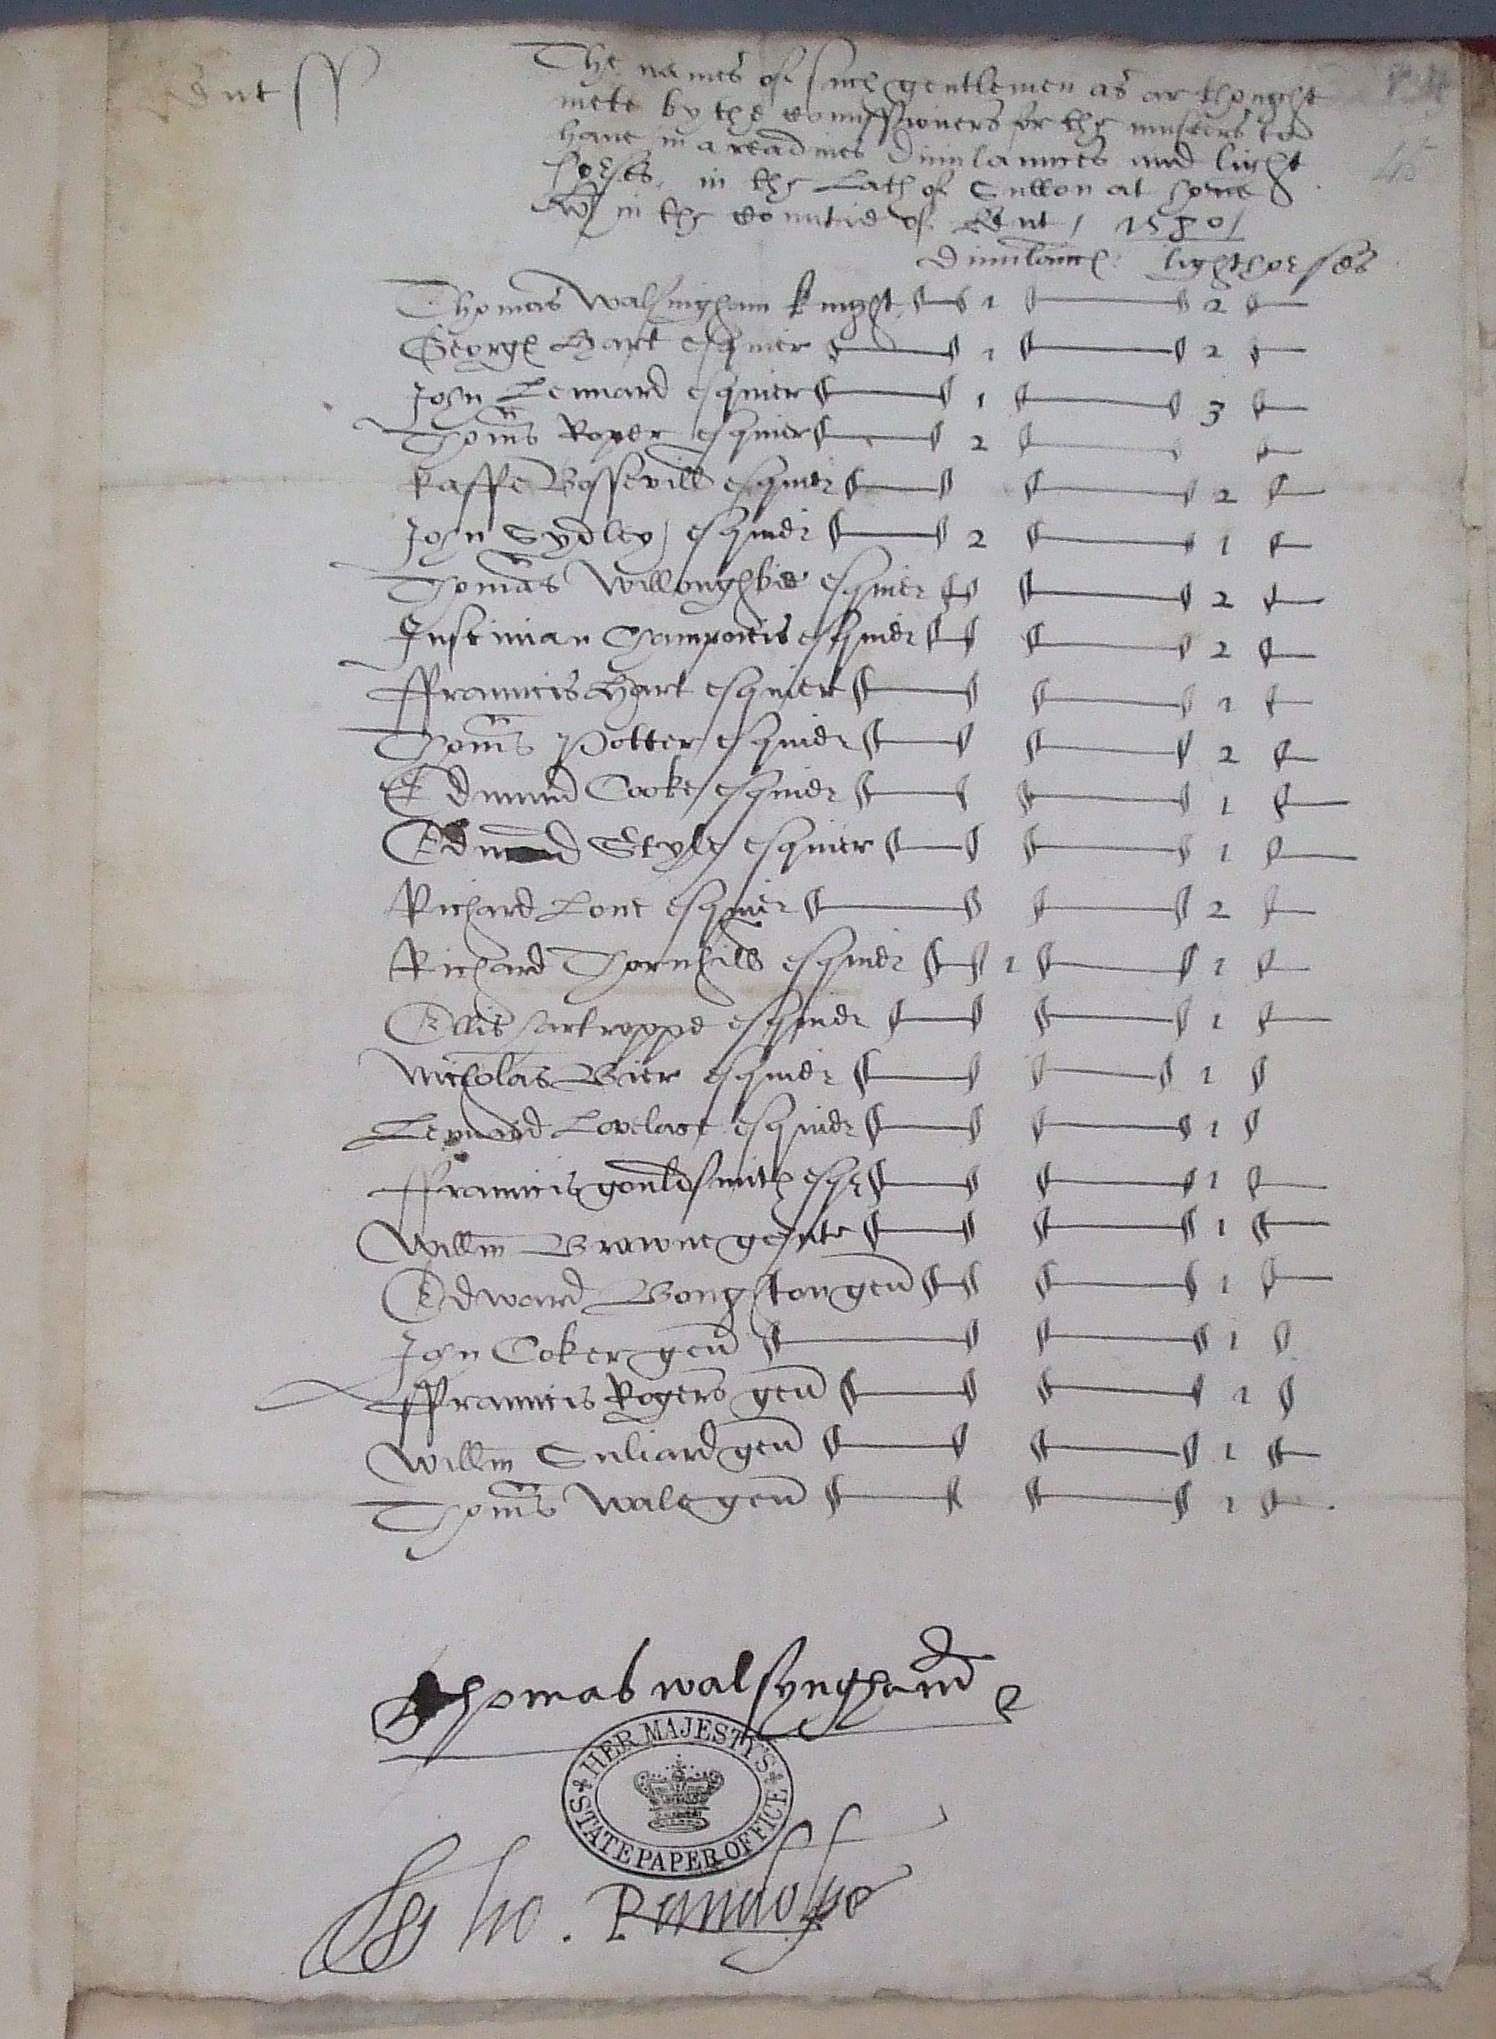 Kent ss
The names of such gentlemen as ar thought
mete by the comissioners for the musters to
have in a readines dimilaunces and light
horses, in the Lath of Sutton at hone
in the countie of Kent / 1580 /
Dimilaunc: light horses
Thomas Walsingham knight 1 2
George Hart esquier 1 2
John Lennard esquier 1 3
Thoms Roper esquier 2
Raffe Bossevill esquier 2
John Sydley esquier 2 1
Thomas Willoughbie esquier 2
Justinian Champneis esquier 2
ffrauncis Hart esquier 1
Thoms Potter esquier 2
Edmund Cooke esquier 1
Edmond Style esquier 1
Richard Lone esquier 2
Richard Thornhill esquier 1 1
Ellis hartroppe esquier 1
Nicholas Bier esquier 1
Leonard Lovelace esquier 1
ffrauncis gouldsmith esqr 1
Willm Browne gente 1
Edward Boughton gen 1
John Coker gen 1
ffrauncis Rogers gen 1
Willm Suliard gen 1
Thoms Wale gen 1
Thomas walsyngham
HER MAJESTY'S STATE PAPER OFFICE
Tho. Randolphe